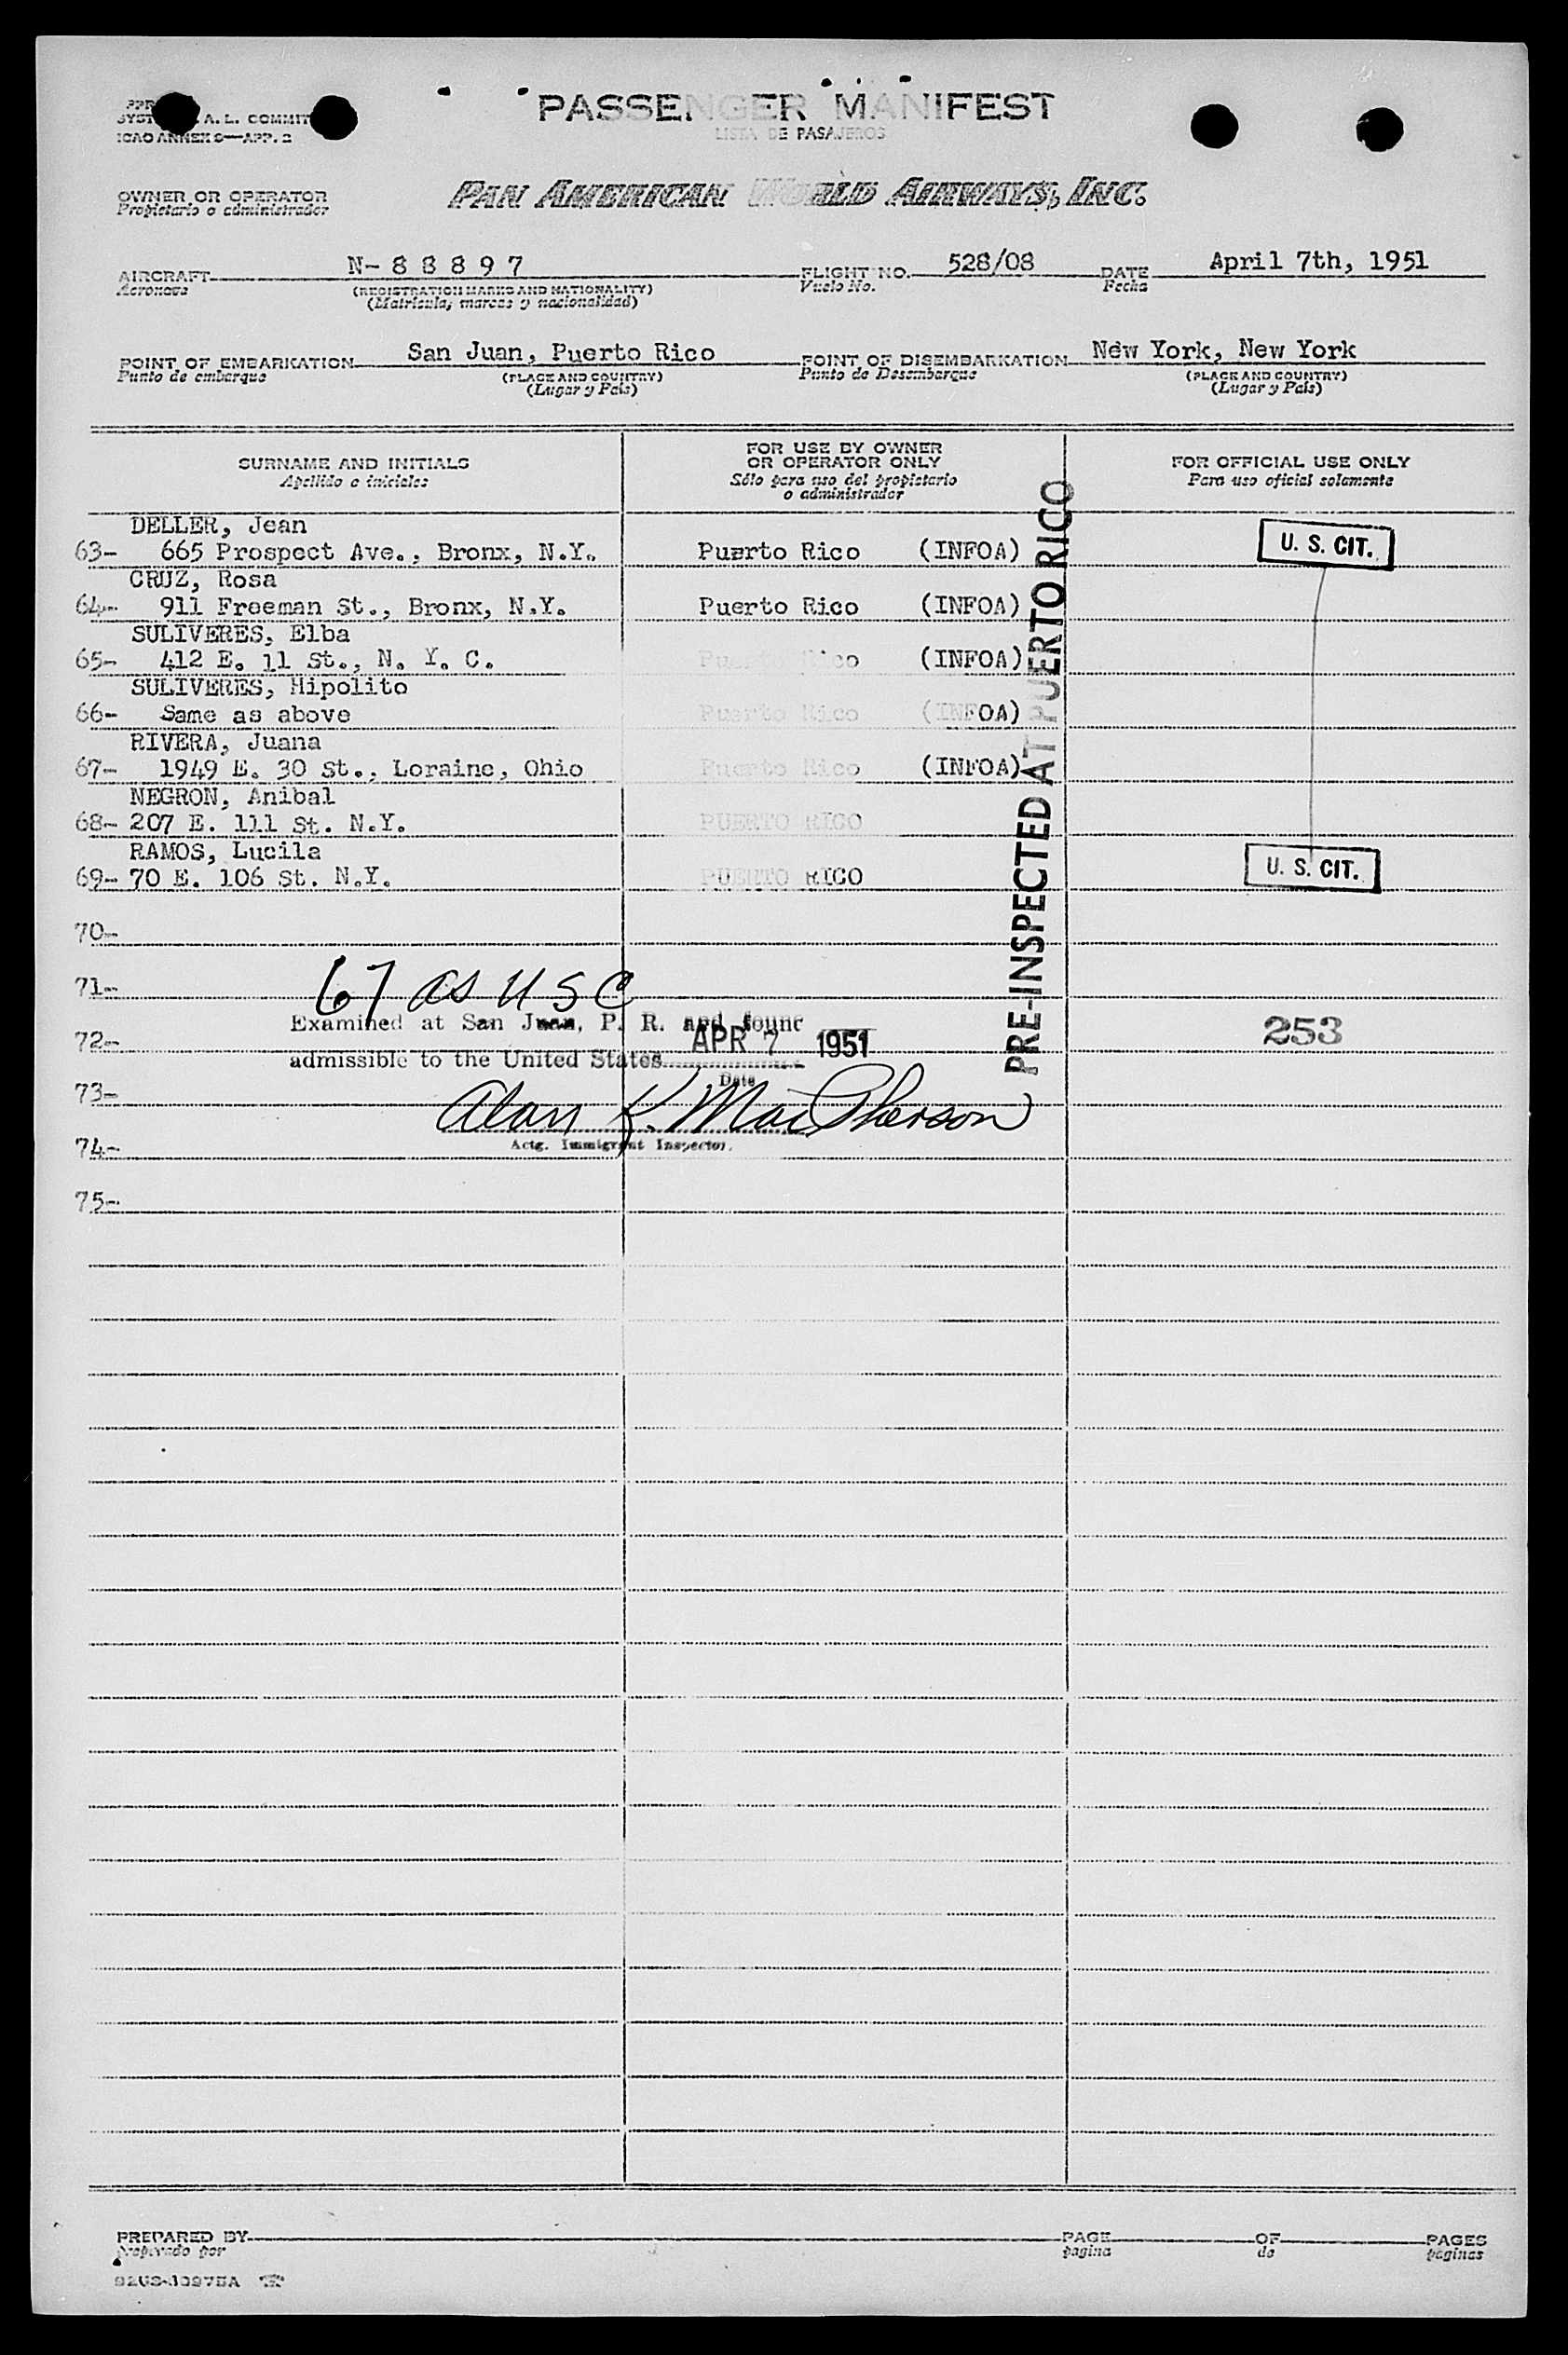 PASSENGER MANIFEST
LISTA DE PASAJEROS
A. L. COMMIT
ICAO ANNEX 9—APP. 2
OWNER OR OPERATOR
Propietario o administrador
PAN AMERICAN WORLD AIRWAYS, INC.
AIRCRAFT N-88897 FLIGHT NO. 528/08 DATE April 7th, 1951
Aeronave (REGISTRATION MARKS AND NATIONALITY) Vuelo No. Fecha
(Matrícula, marcas y nacionalidad)
POINT OF EMBARKATION San Juan, Puerto Rico POINT OF DISEMBARKATION New York, New York
Punto de embarque (PLACE AND COUNTRY) Punto de Desembarque (PLACE AND COUNTRY)
(Lugar y País) (Lugar y País)
SURNAME AND INITIALS
Apellido e iniciales
FOR USE BY OWNER
OR OPERATOR ONLY
Sólo para uso del propietario
o administrador
FOR OFFICIAL USE ONLY
Para uso oficial solamente
DELLER, Jean
63- 665 Prospect Ave., Bronx, N.Y. Puerto Rico (INFOA) U. S. CIT.
CRUZ, Rosa
64- 911 Freeman St., Bronx, N.Y. Puerto Rico (INFOA)
SULIVERES, Elba
65- 412 E. 11 St., N. Y. C. Puerto Rico (INFOA)
SULIVERES, Hipolito
66- Same as above Puerto Rico (INFOA)
RIVERA, Juana
67- 1949 E. 30 St., Loraine, Ohio Puerto Rico (INFOA)
NEGRON, Anibal
68- 207 E. 111 St. N.Y. PUERTO RICO
RAMOS, Lucila
69- 70 E. 106 St. N.Y. PUERTO RICO U. S. CIT.
PRE-INSPECTED AT PUERTO RICO
70-
71- 67 as USC
Examined at San Juan, P. R. and found
72- APR 7 1951 253
admissible to the United States
Date
73- Alan K. MacPherson
74- Actg. Immigrant Inspector.
75-
PREPARED BY PAGE OF PAGES
preparado por pagina de paginas